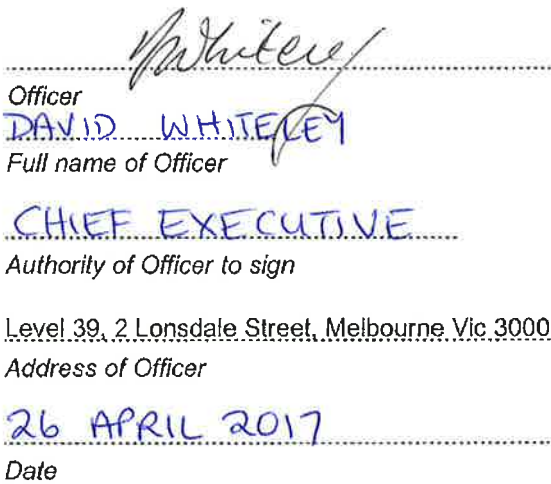 DWhiteley
Officer
DAVID WHITELEY
Full name of Officer
CHIEF EXECUTIVE
Authority of Officer to sign
Level 39, 2 Lonsdale Street, Melbourne Vic 3000
Address of Officer
26 APRIL 2017
Date